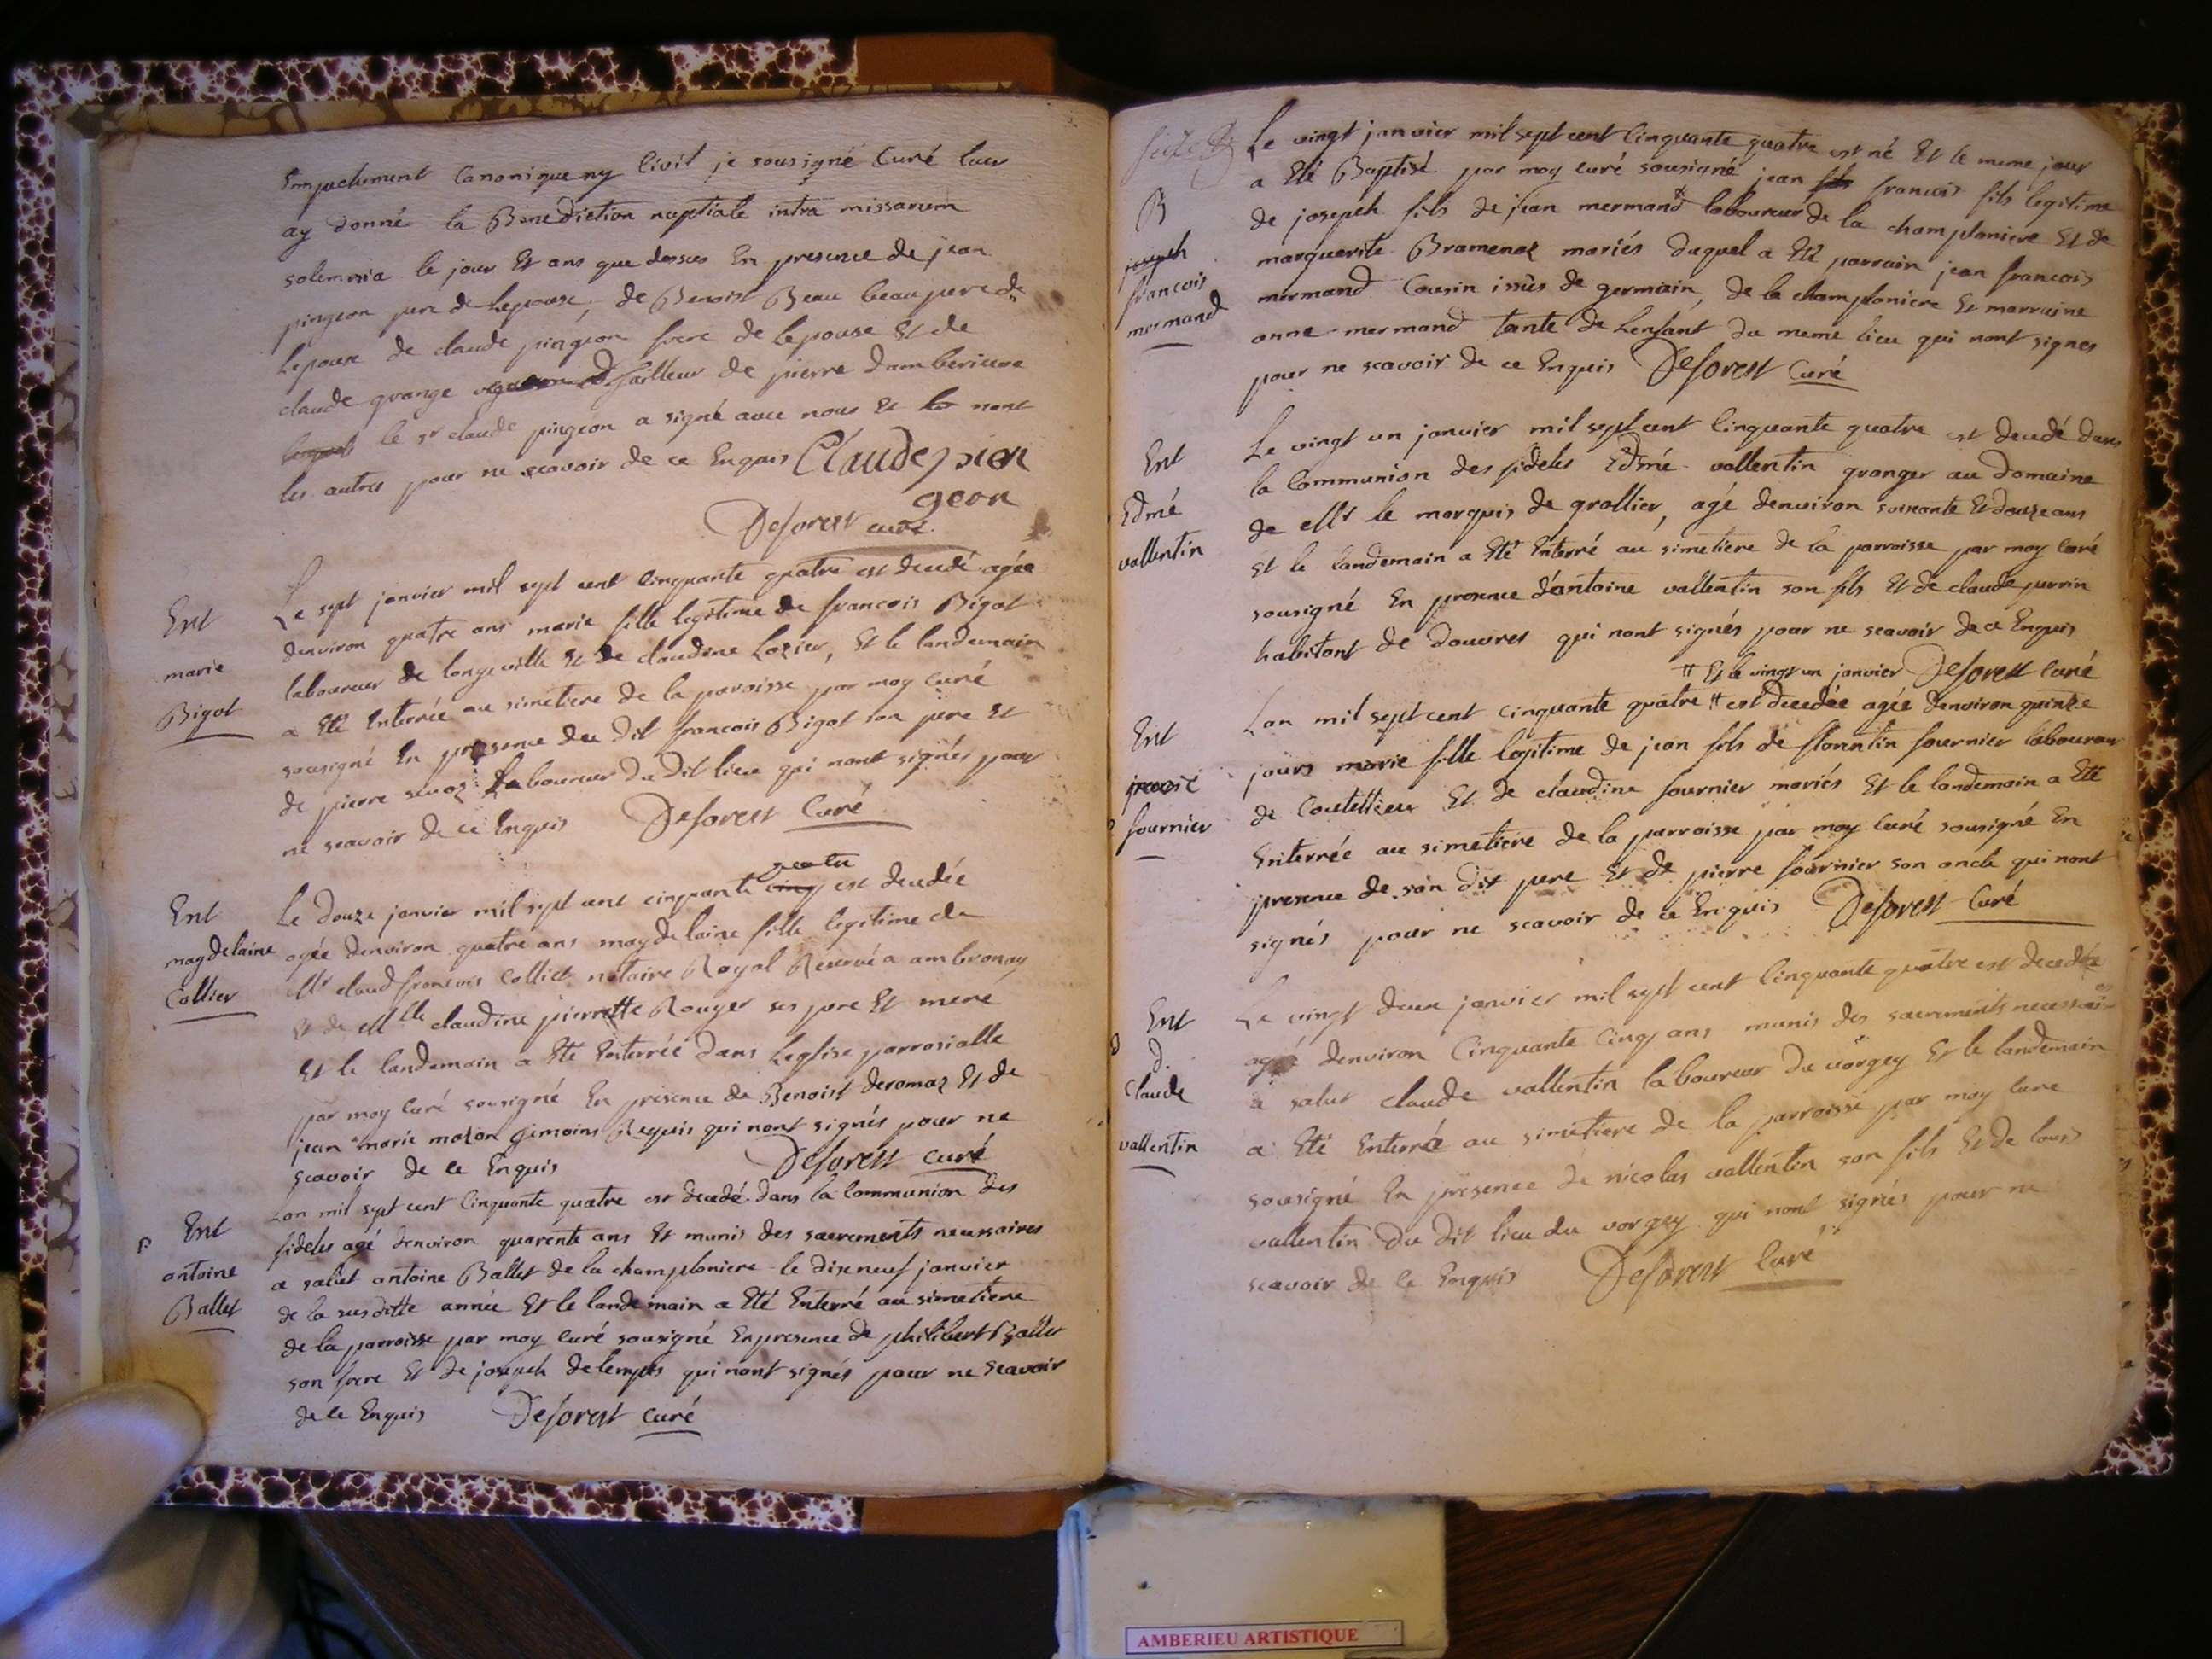 Empechement Canonique ny Civil je sousigné Curé leur
ay donné la Benediction nuptiale intra missarum
solemnia le jour Et ans que dessus En presence de jean
pingeon pere de Lepouse, de Benoist Beau beaupere de
Lepoux de claude pingeon frere de Lepouse Et de
claude grange tailleur de pierre dambericux
le sr claude pingeon a signé avec nous Et nont
les autres pour ne scavoir de ce Enquis Claude pien
geon
Deforest curé
Ent
marie
Bigot
Le sept janvier mil sept cent Cinquante quatre est decedé agée
denviron quatre ans marie fille legitime de francois Bigot
laboureur de longeville Et de claudine Lozier, Et le landemain
a Eté Enterrée au simetiere de la paroisse par moy Curé
sousigné En presence du dit francois Bigot son pere Et
de pierre Laboureur du dit lieu qui nont signés pour
ne scavoir de ce Enquis Deforest Curé
Ent
magdelaine
Collier
Le douze janvier mil sept cent cinquante cinq quatre est decedée
agée denviron quatre ans magdelaine fille legitime de
Mr claud francois Collier notaire Royal Reservé a ambronay
Et de Mlle claudine pierrette Rouger ses pere Et mere
Et le landemain a Eté Enterrée dans Leglise parrosialle
par moy Curé sousigné En presence de Benoist deromaz Et de
jean marie mazon temoins Requis qui nont signés pour ne
scavoir de ce Enquis Deforest curé
Ent
antoine
Ballet
Lan mil sept cent Cinquante quatre est decedé dans la Communion des
fideles agé denviron quarente ans Et munis des sacrements necessaires
a salut antoine Ballet de la champloniere le dixneuf janvier
de la susditte année Et le landemain a Eté Enterré au simetiere
de la parroisse par moy Curé sousigné En presence de philibert Ballet
son frere Et de joseph delemps qui nont signés pour ne scavoir
de ce Enquis Deforest curé
B
joseph
francois
mermand
Le vingt janvier mil sept cent Cinquante quatre est né Et le meme jour
a Eté Baptisé par moy curé sousigné jean fils francois fils legitime
de joseph fils de jean mermand laboureur de la champloniere Et de
marguerite Bramenaz mariés duquel a Eté parrain jean francois
mermand Cousin issus de germain, de la champloniere Et marraine
anne mermand tante de Lenfant du meme lieu qui nont signes
pour ne scavoir de ce Enquis Deforest Curé
Ent
Edmé
vallentin
Le vingt un janvier mil sept cent Cinquante quatre est decedé dans
la Communion des fideles Edmé vallentin granger au domaine
de Mr le marquis de grollier, agé denviron soixante Et douze ans
Et le landemain a Eté Enterré au simetiere de la parroisse par moy Curé
sousigné En presence dantoine vallentin son fils Et de claude perrin
habitant de douvres qui nont signés pour ne scavoir de ce Enquis
# Et le vingt un janvier Deforest Curé
Ent
fournier
Lan mil sept cent cinquante quatre # est decedée agée denviron quinze
jours marie fille legitime de jean fils de florentin fournier laboureur
de Coutelieu Et de claudine fournier mariés Et le landemain a Eté
Enterrée au simetiere de la parroisse par moy Curé sousigné En
presence de son dit pere Et de pierre fournier son oncle qui nont
signés pour ne scavoir de ce Enquis Deforest Curé
Ent
d.
Claude
vallentin
Le vingt deux janvier mil sept cent Cinquante quatre est decedé
agé denviron Cinquante Cinq ans munis des sacrements necessaires
a salut claude vallentin laboureur du vorgey Et le landemain
a Eté Enterré au simetiere de la parroisse par moy Curé
sousigné En presence de nicolas vallentin son fils Et de louis
vallentin du dit lieu du vorgey qui nont signés pour ne
scavoir de ce Enquis Deforest Curé
AMBERIEU ARTISTIQUE